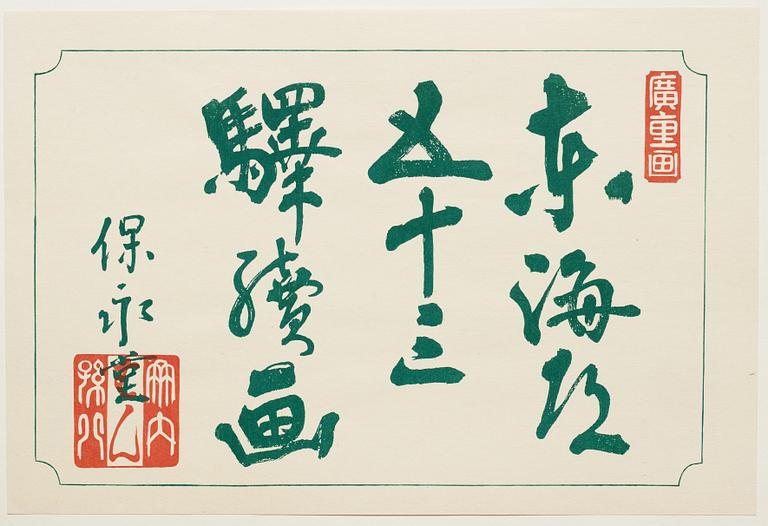 廣重画
东海道
五十三
驛續画
保永堂